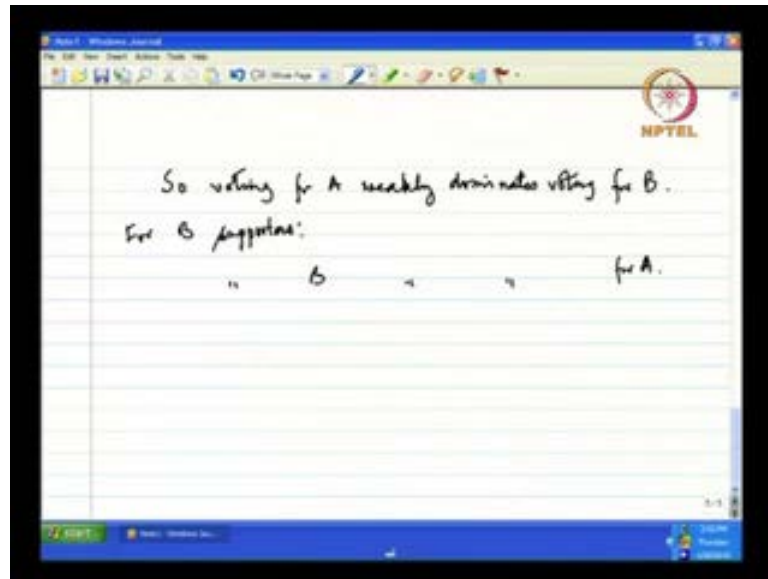 Note1 - Windows Journal
File Edit View Insert Actions Tools Help
NPTEL
So voting for A weakly dominates voting for B.
For B supporters:
" B " " for A.
start